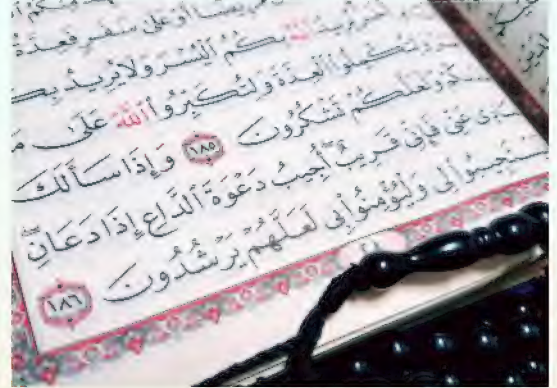 أَوْ عَلَىٰ سَفَرٍ فَعِدَّةٌ
ٱللَّهُ بِكُمُ ٱلْيُسْرَ وَلَا يُرِيدُ بِكُ
وَلِتُكْمِلُوا۟ ٱلْعِدَّةَ وَلِتُكَبِّرُوا۟ ٱللَّهَ عَلَىٰ مَ
وَلَعَلَّكُمْ تَشْكُرُونَ ١٨٥ وَإِذَا سَأَلَكَ
عِبَادِى عَنِّى فَإِنِّى قَرِيبٌ أُجِيبُ دَعْوَةَ ٱلدَّاعِ إِذَا دَعَانِ
فَلْيَسْتَجِيبُوا۟ لِى وَلْيُؤْمِنُوا۟ بِى لَعَلَّهُمْ يَرْشُدُونَ ١٨٦